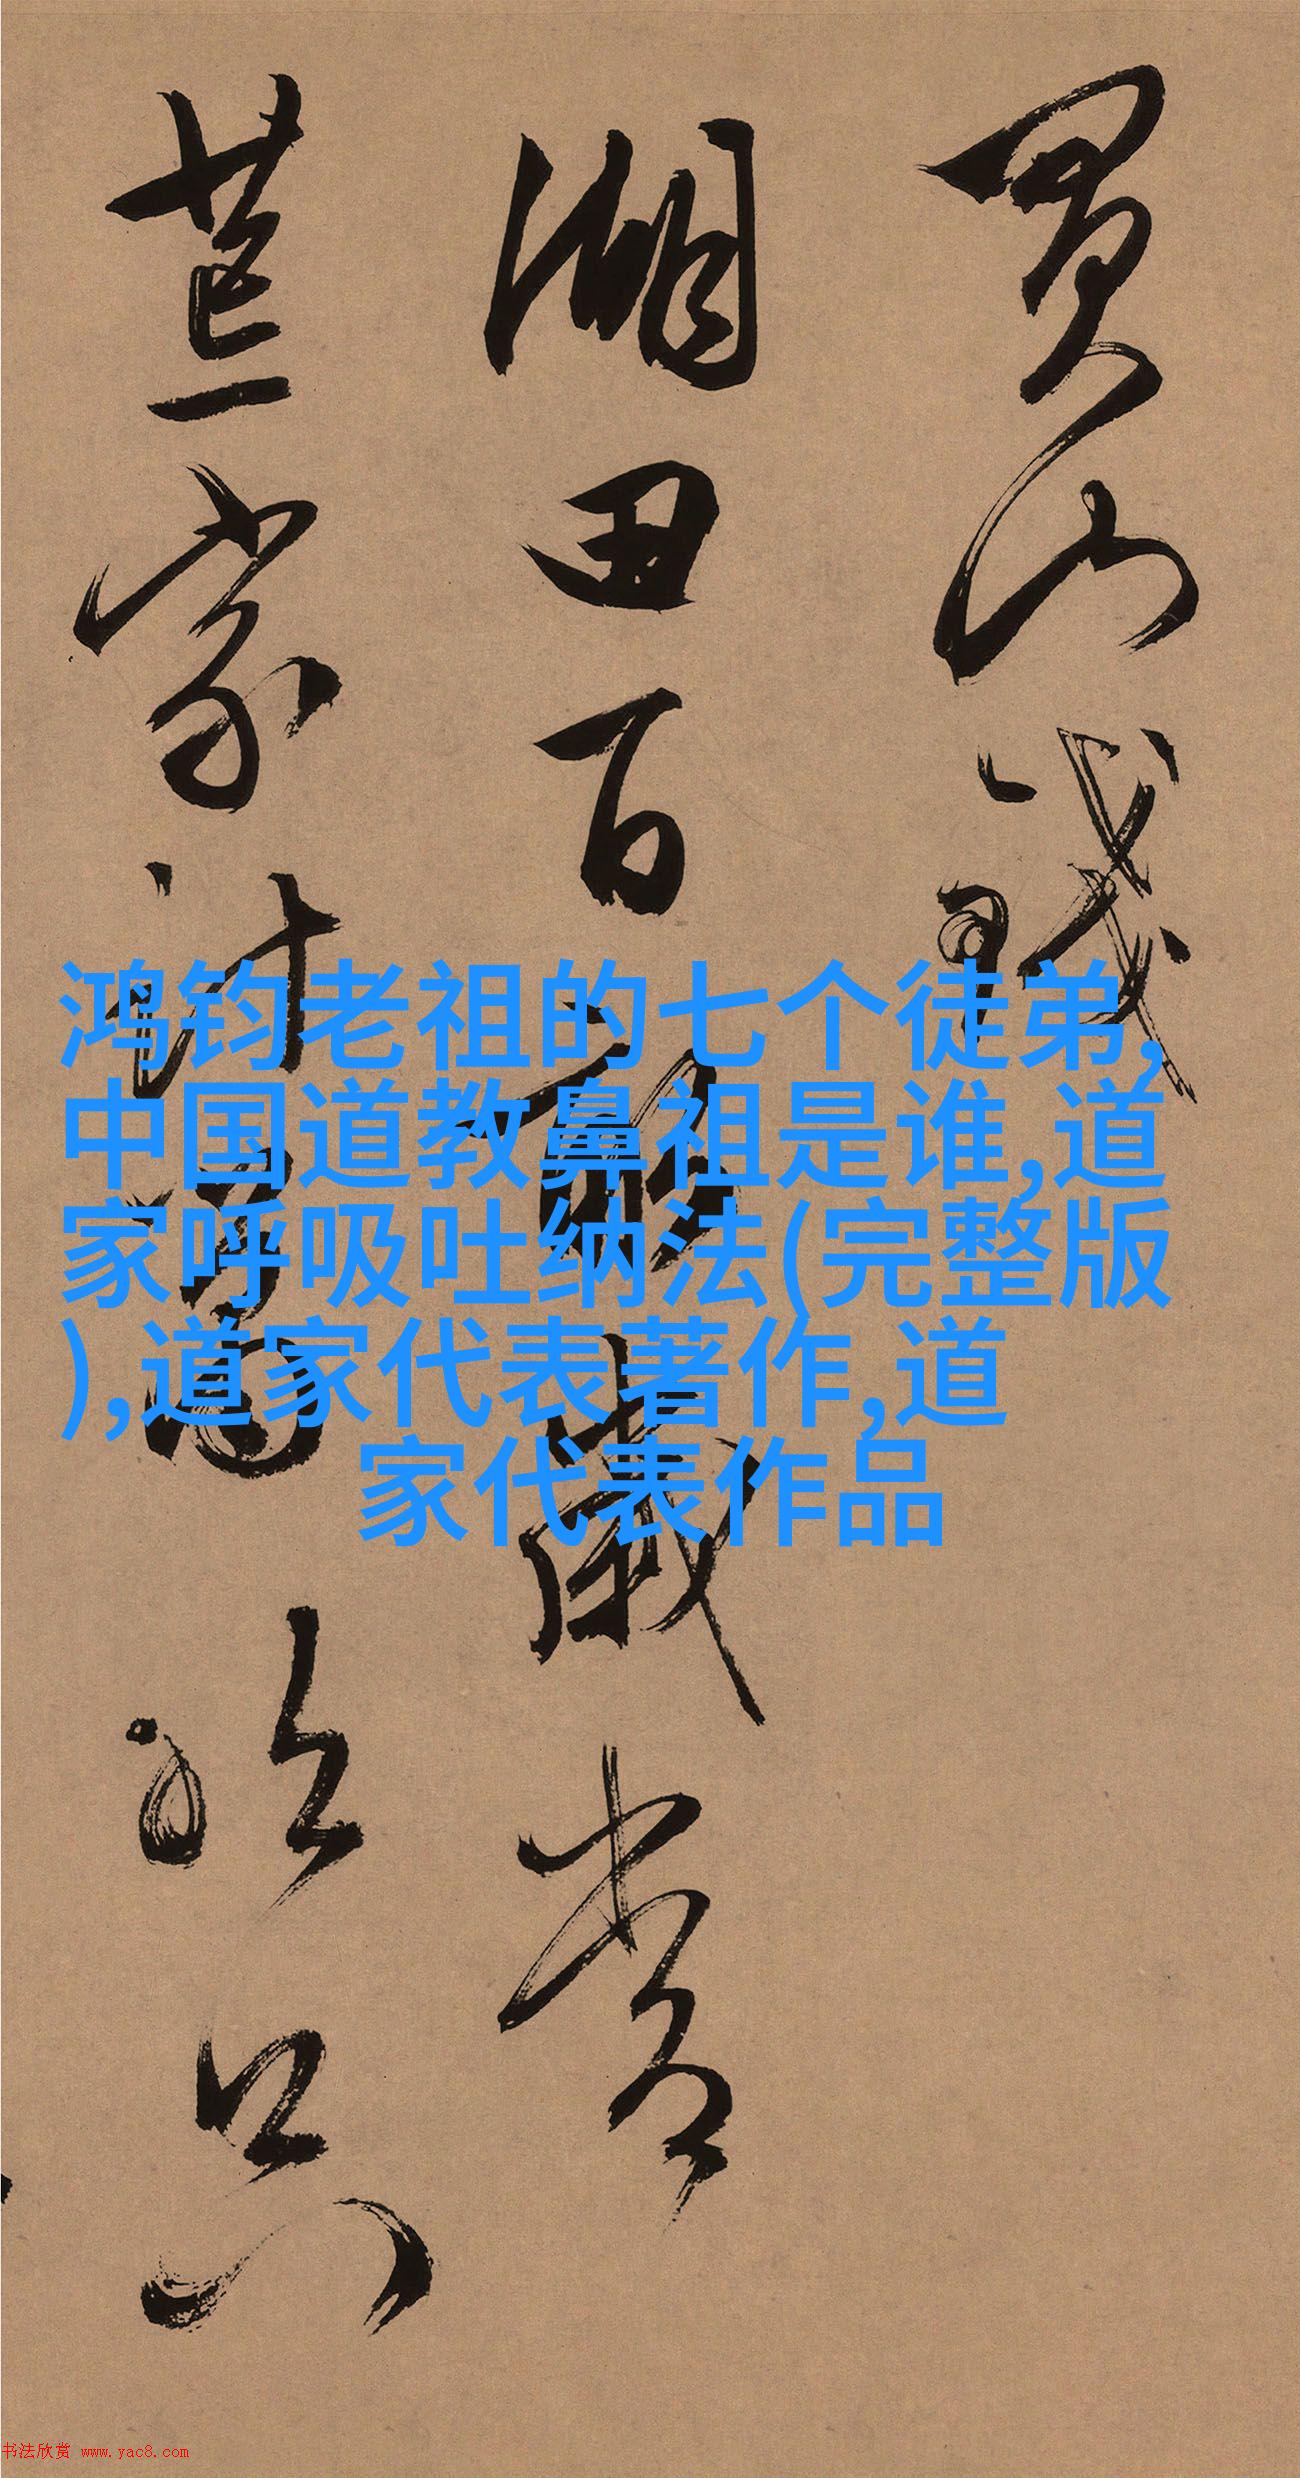 買山錢
湖田百畝歲常
荒家計只
鸿钧老祖的七个徒弟,
中国道教鼻祖是谁,道
家呼吸吐纳法(完整版
),道家代表著作,道
家代表作品
书法欣赏 www.yac8.com